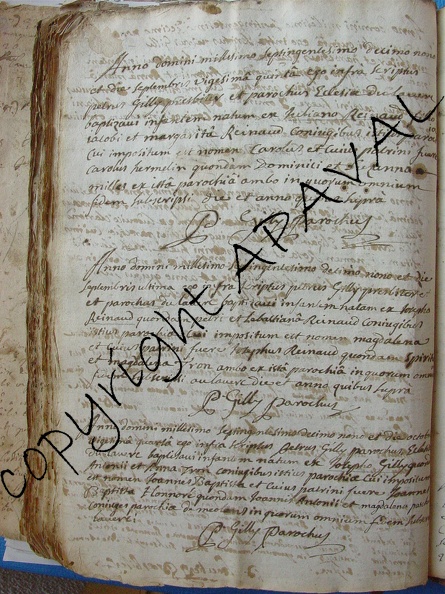 Anno domini millesimo septingentesimo decimo nono
et die septembris vigesima quinta ego infra scriptus
petrus Gilly presbiter et parochus Eclesiæ du lavere
baptizavi infantem natum ex Juliano Reinaud
iacobi et margarita Reinaud Coniugibus
Cui impositum est nomen Carolus et Cuius patrini fuere
Carolus hermelin quondam Dominici et anna
milles ex ista parochia ambo in quorum omnium
fidem subscripsi die et anno quibus supra
P Gilly Parochus
Anno domini millesimo septingentesimo decimo nono et die
septembris ultima ego infra scriptus petrus Gilly presbiter
et parochus de lavere baptizavi infantem natam ex Josepho
Reinaud quondam petri et Sebastiana Reinaud Coniugibus
istius parochiæ cui impositum est nomen magdalena
et Cuius patrini fuere Josephus Reinaud quondam Spiriti
et magdalena ambo ex ista parochia in quorum omnium
au lavere die et anno quibus supra
P Gilly Parochus
Anno domini millesimo septingentesimo decimo nono et die octobris
quarta ego infra scriptus Petrus Gilly parochus Eclesiæ
Du lavere baptizavi infantem natum ex Josepho Gilly quondam
Antonii et Anna coniugibus istius parochiæ cui impositum
est nomen Joannes Baptista et Cuius patrini fuere Joannes
Baptista quondam Joannis Antonii et magdalena
Coniuges parochiæ de in quorum omnium fidem
laverii
P Gilly Parochus
copyright APAVAL